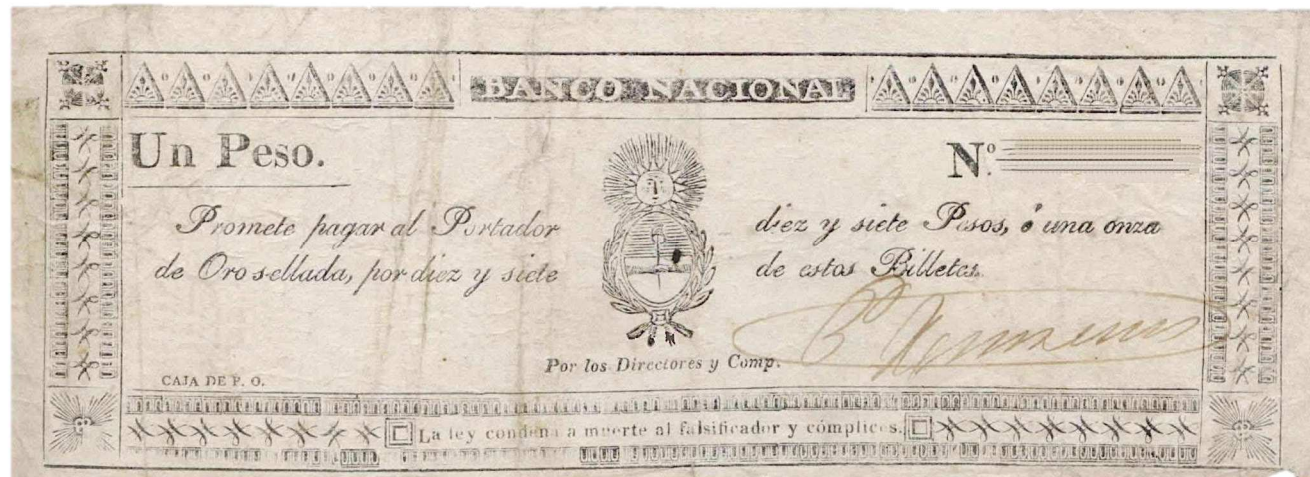 BANCO NACIONAL
Un Peso.
Nº
Promete pagar al Portador diez y siete Pesos, ó una onza
de Oro sellada, por diez y siete de estos Billetes.
Por los Directores y Comp.
CAJA DE P. O.
La ley condena a muerte al falsificador y cómplices.